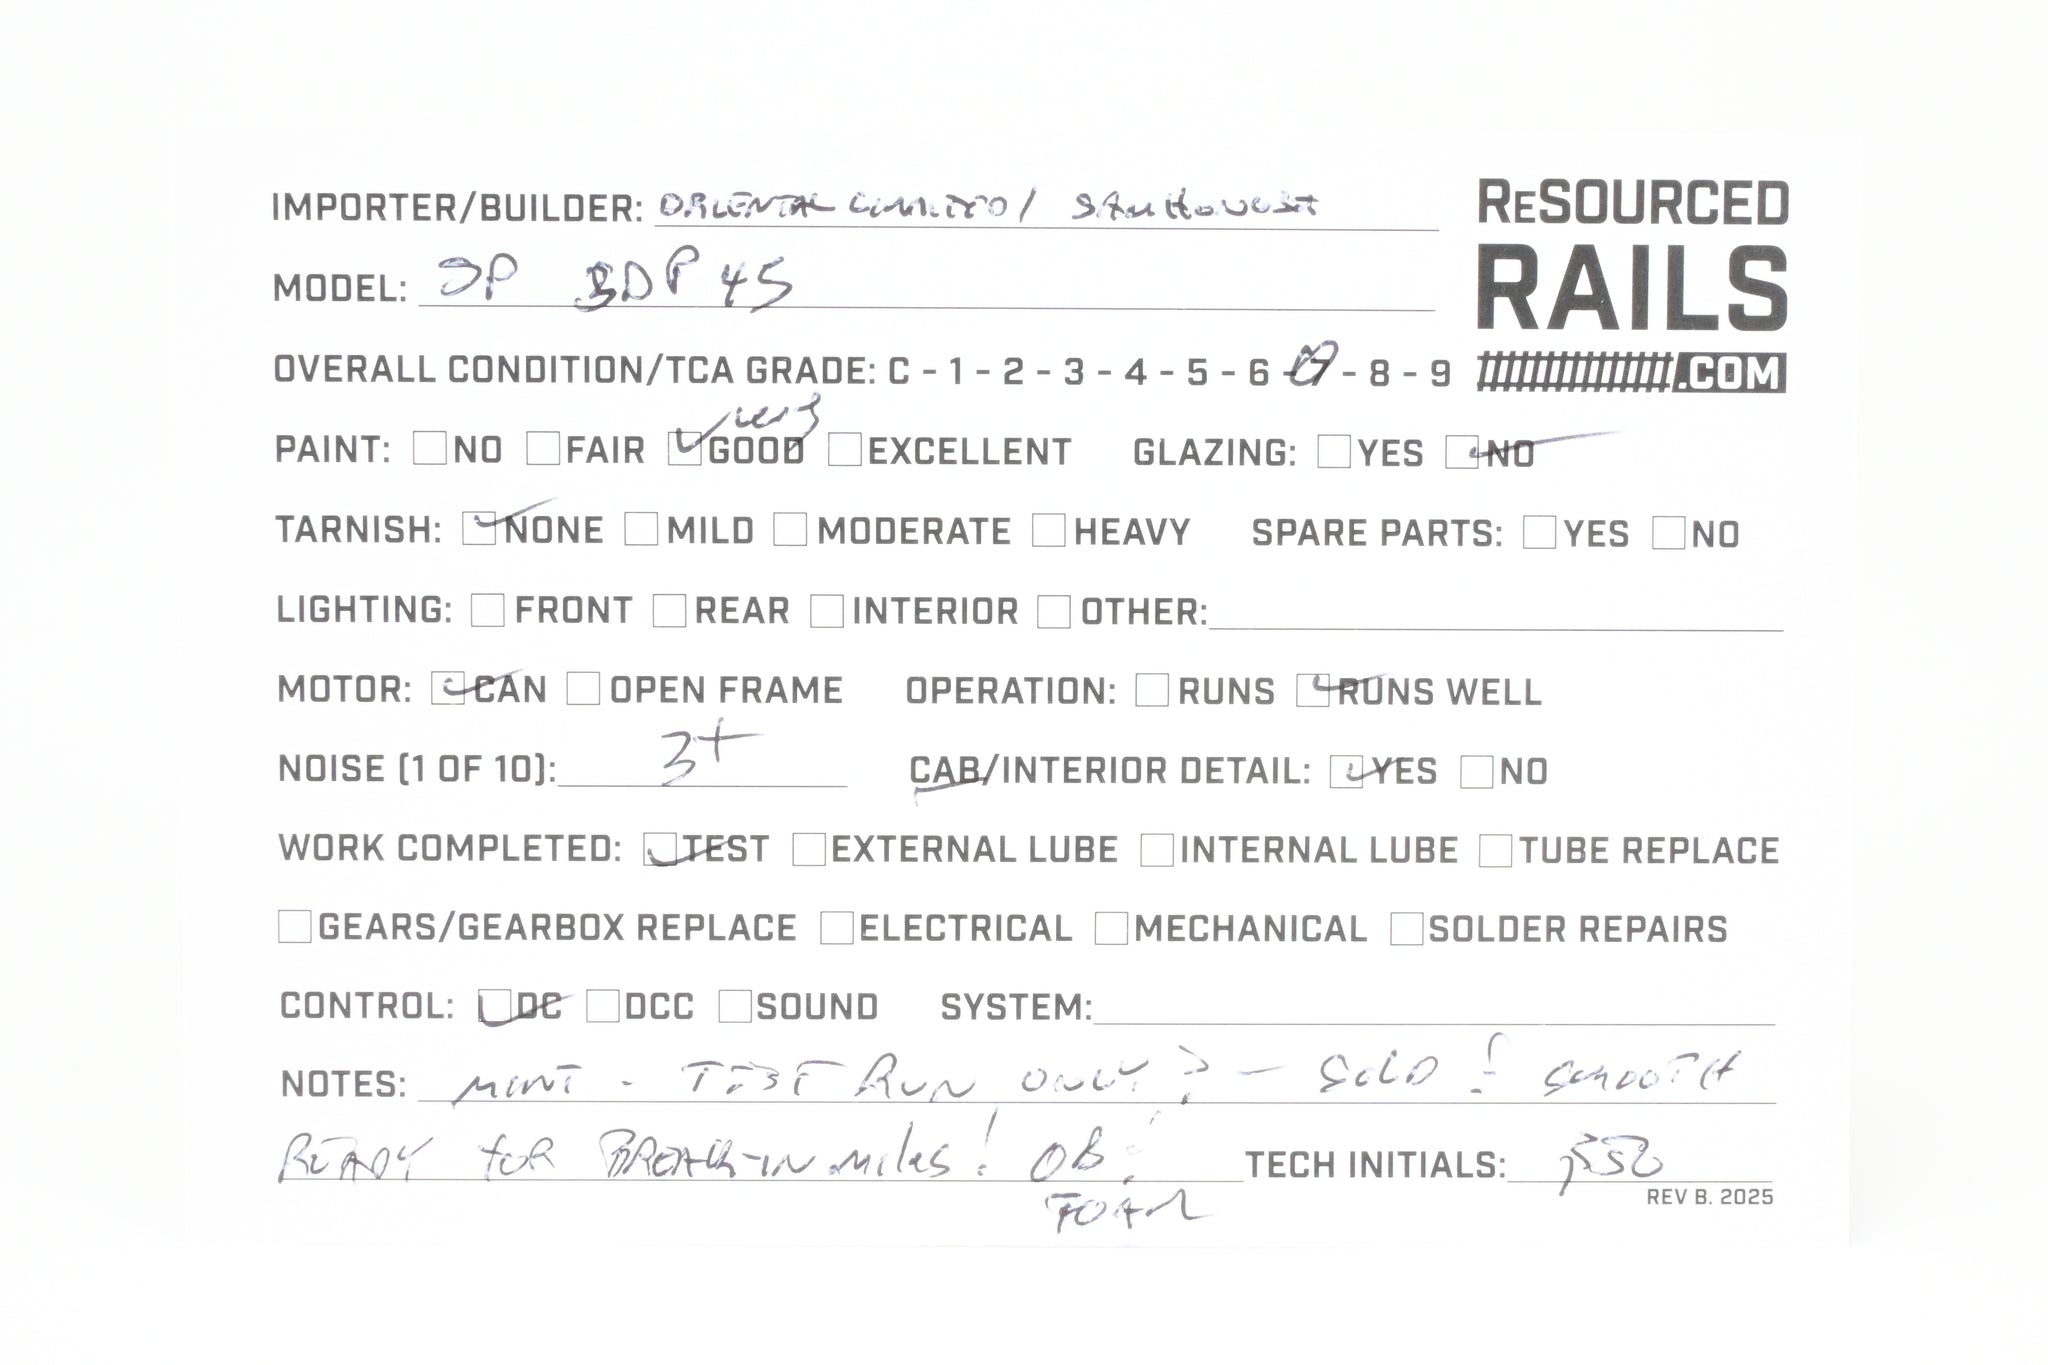 IMPORTER/BUILDER: ORIENTAL LIMITED / SAMHONGSA
RESOURCED
RAILS
.COM
MODEL: SP SDP 45
OVERALL CONDITION/TCA GRADE: C - 1 - 2 - 3 - 4 - 5 - 6 - 7 - 8 - 9
very
PAINT: NO FAIR GOOD EXCELLENT GLAZING: YES NO
TARNISH: NONE MILD MODERATE HEAVY SPARE PARTS: YES NO
LIGHTING: FRONT REAR INTERIOR OTHER:
MOTOR: CAN OPEN FRAME OPERATION: RUNS RUNS WELL
NOISE (1 OF 10): 3+ CAB/INTERIOR DETAIL: YES NO
WORK COMPLETED: TEST EXTERNAL LUBE INTERNAL LUBE TUBE REPLACE
GEARS/GEARBOX REPLACE ELECTRICAL MECHANICAL SOLDER REPAIRS
CONTROL: DC DCC SOUND SYSTEM:
NOTES: MINT - TEST RUN ONLY? - SOLD! SMOOTH
READY FOR BREAK-IN Miles! OB! TECH INITIALS:
FOAM
REV B. 2025